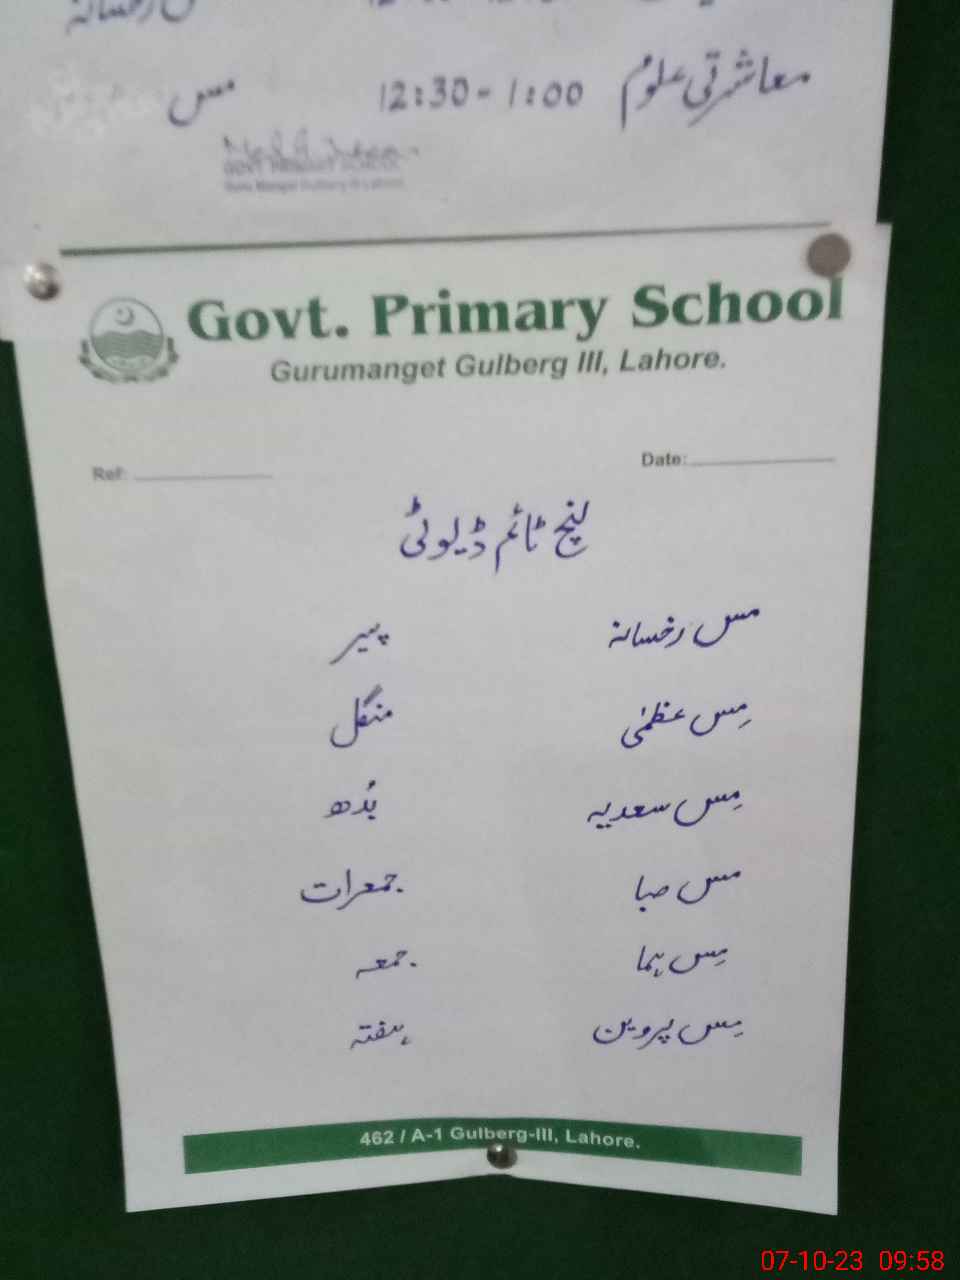 معاشرتی علوم 12:30 - 1:00 مس
Govt. Primary School
Gurumanget Gulberg III, Lahore.
Ref: Date:
لنچ ٹائم ڈیوٹی
مس رخسانہ پیر
مِس عظمٰی منگل
مِس سعدیہ بُدھ
مس صبا جمعرات
مِس ہما جمعہ
مِس پروین ہفتہ
462 / A-1 Gulberg-III, Lahore.
07-10-23 09:58